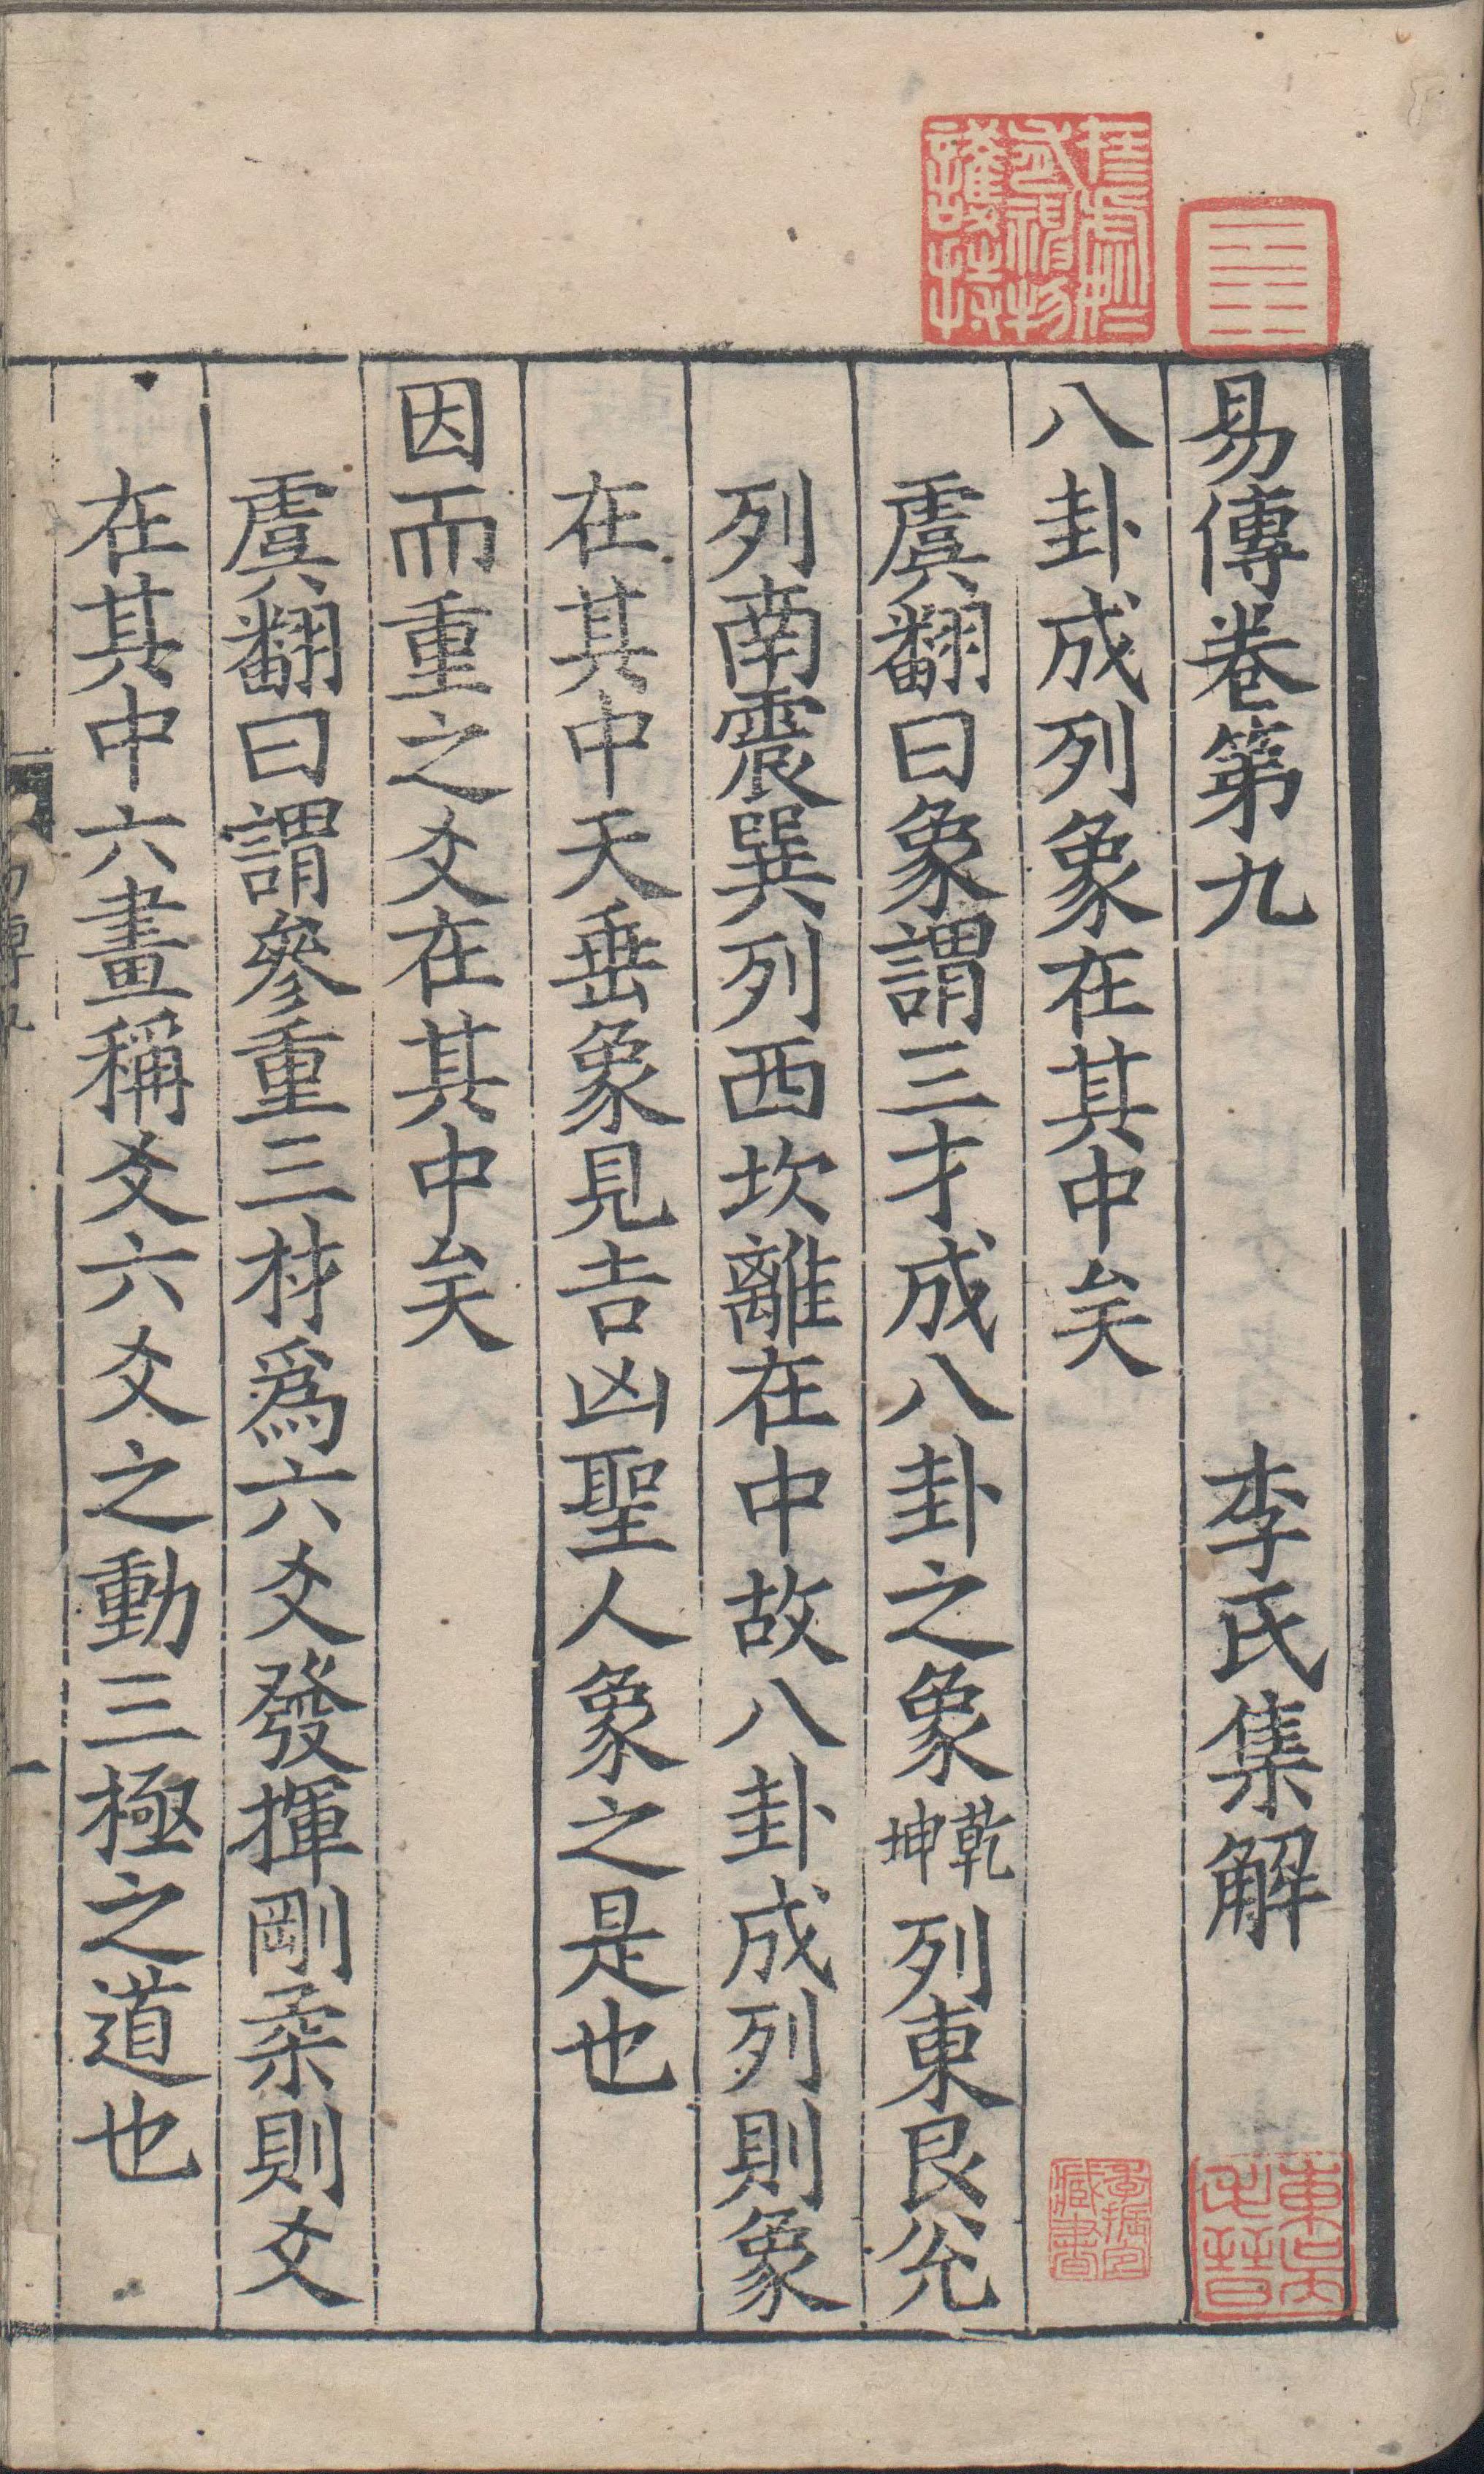 易傳卷第九 李氏集解
八卦成列象在其中矣
虞翻曰象謂三才成八卦之象乾坤列東艮兌
列南震巽列西坎離在中故八卦成列則象
在其中天垂象見吉凶聖人象之是也
因而重之爻在其中矣
虞翻曰謂參重三才爲六爻發揮剛柔則爻
在其中六畫稱爻六爻之動三極之道也
東吳毛晉
藏書
護持